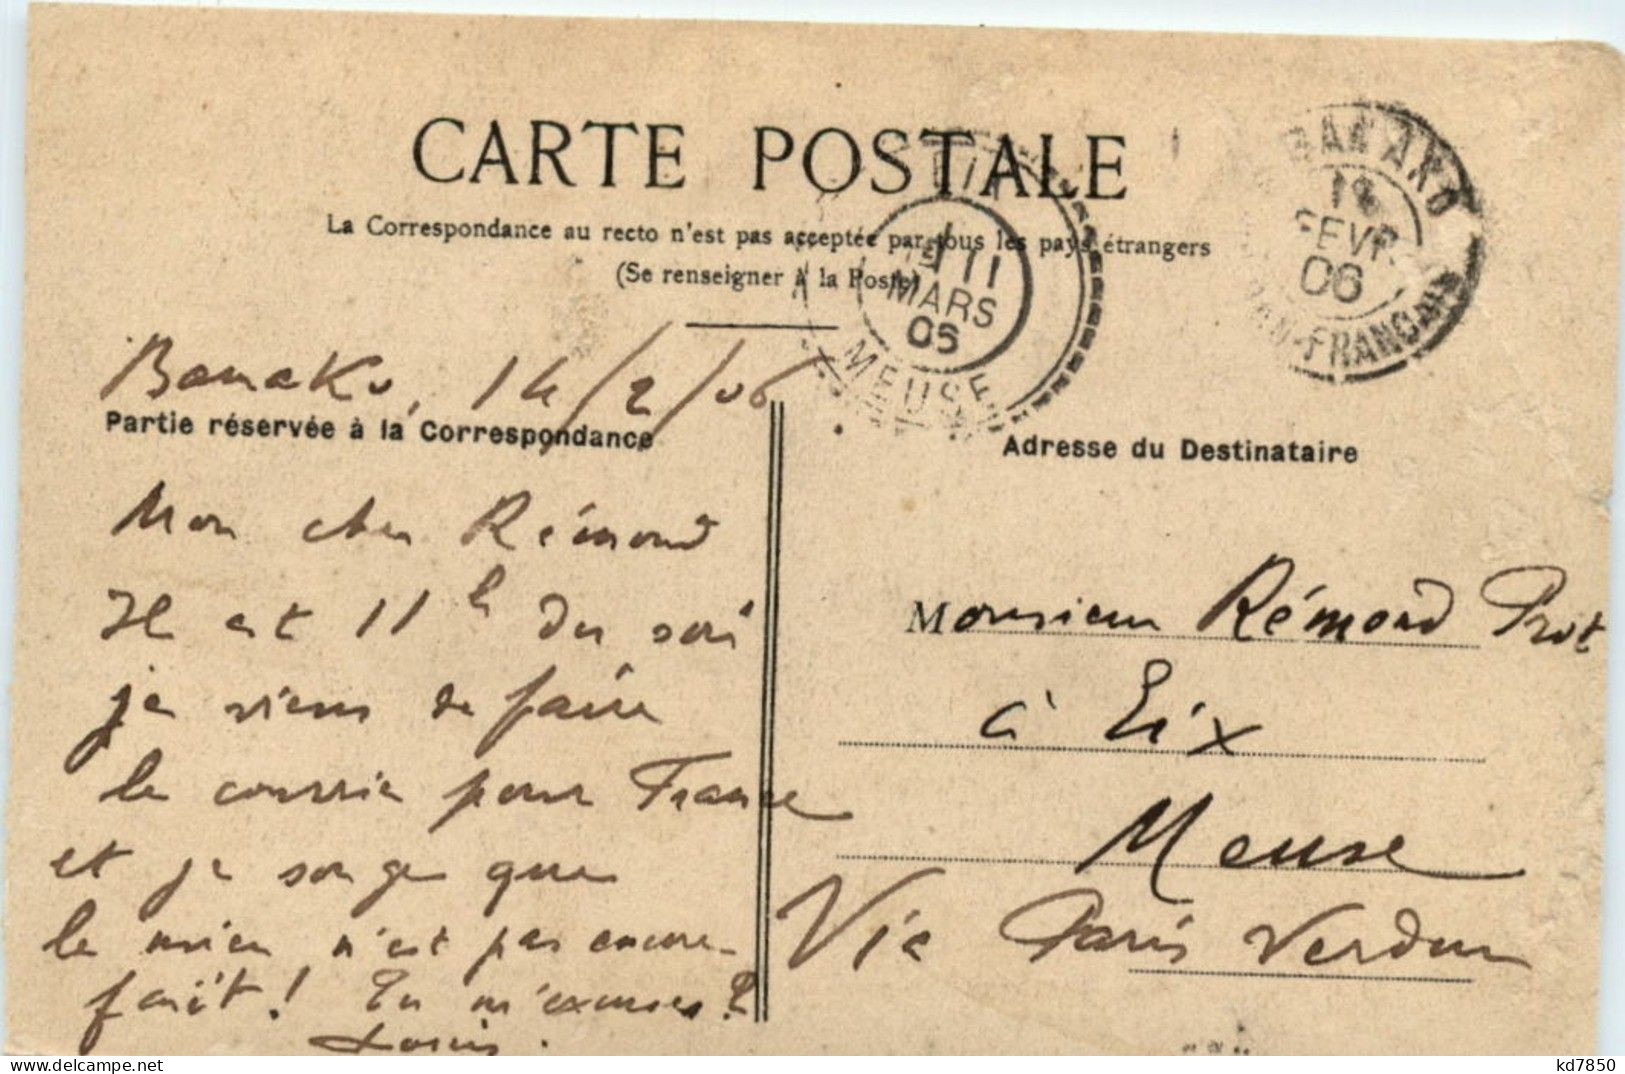 CARTE POSTALE
La Correspondance au recto n'est pas acceptée par tous les pays étrangers
(Se renseigner à la Poste)
BAMAKO
FEVR.
06
FRANÇAIS
11
MARS
06
MEUSE
Bamako, 14/2/06
Partie réservée à la Correspondance
Mon cher Rémond
Il est 11h du soir
je viens de faire
le courrier pour France
et je songe que
le mien n'est pas encore
fait! Tu m'excuses?
Louis.
Adresse du Destinataire
Monsieur Rémond Prot
à Eix
Meuse
Via Paris Verdun
kd7850